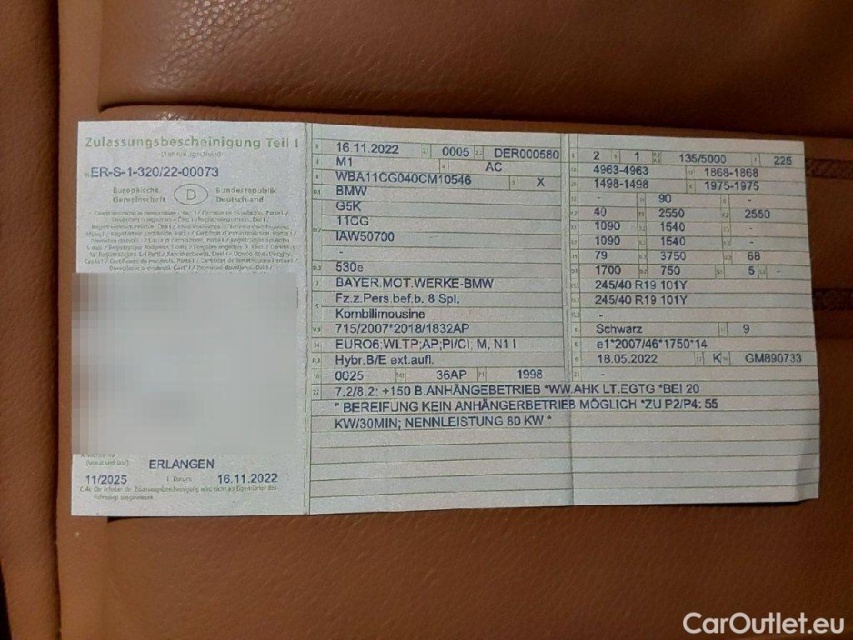 Zulassungsbescheinigung Teil I
ER-S-1-320/22-00073
Europäische Gemeinschaft
D
Bundesrepublik Deutschland
ERLANGEN
11/2025
16.11.2022
16.11.2022 0005 DER000580
M1 AC
WBA11CG040CM10546 X
BMW
G5K
11CG
IAW50700
-
530e
BAYER.MOT.WERKE-BMW
Fz.z.Pers.bef.b. 8 Spl.
Kombilimousine
715/2007*2018/1832AP
EURO6;WLTP;AP;PI/CI; M, N1 I
Hybr.B/E ext.aufl.
0025 36AP 1998
7.2/8.2: +150 B.ANHÄNGEBETRIEB *WW.AHK LT.EGTG *BEI 20
" BEREIFUNG KEIN ANHÄNGERBETRIEB MÖGLICH *ZU P2/P4: 55
KW/30MIN; NENNLEISTUNG 80 KW *
2 1 135/5000 225
4963-4963 1868-1868
1498-1498 1975-1975
- 90 -
40 2550 2550
1090 1540 -
1090 1540 -
79 3750 68
1700 750 5 -
245/40 R19 101Y
245/40 R19 101Y
-
Schwarz 9
e1*2007/46*1750*14
18.05.2022 K GM890733
CarOutlet.eu